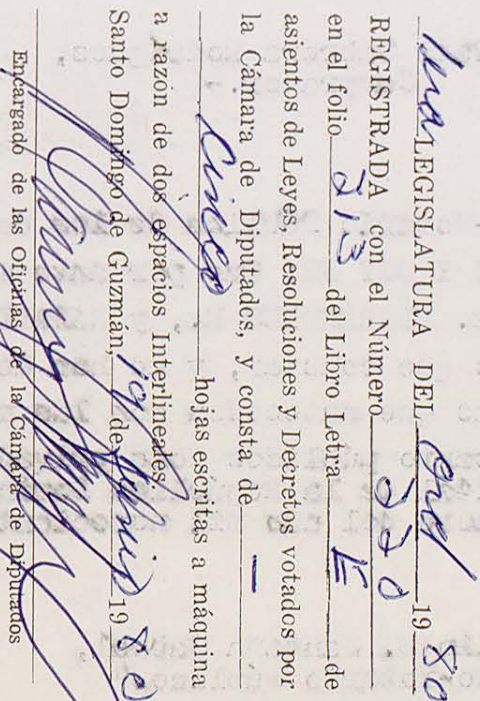 1ra LEGISLATURA DEL ord/ 1980
REGISTRADA con el Número 220
en el folio 213 del Libro Letra E de
asientos de Leyes, Resoluciones y Decretos votados por
la Cámara de Diputados, y consta de —
Cinco hojas escritas a máquina
a razón de dos espacios Interlineales.
Santo Domingo de Guzmán, 19 de Junio 1980
Encargado de las Oficinas de la Cámara de Diputados